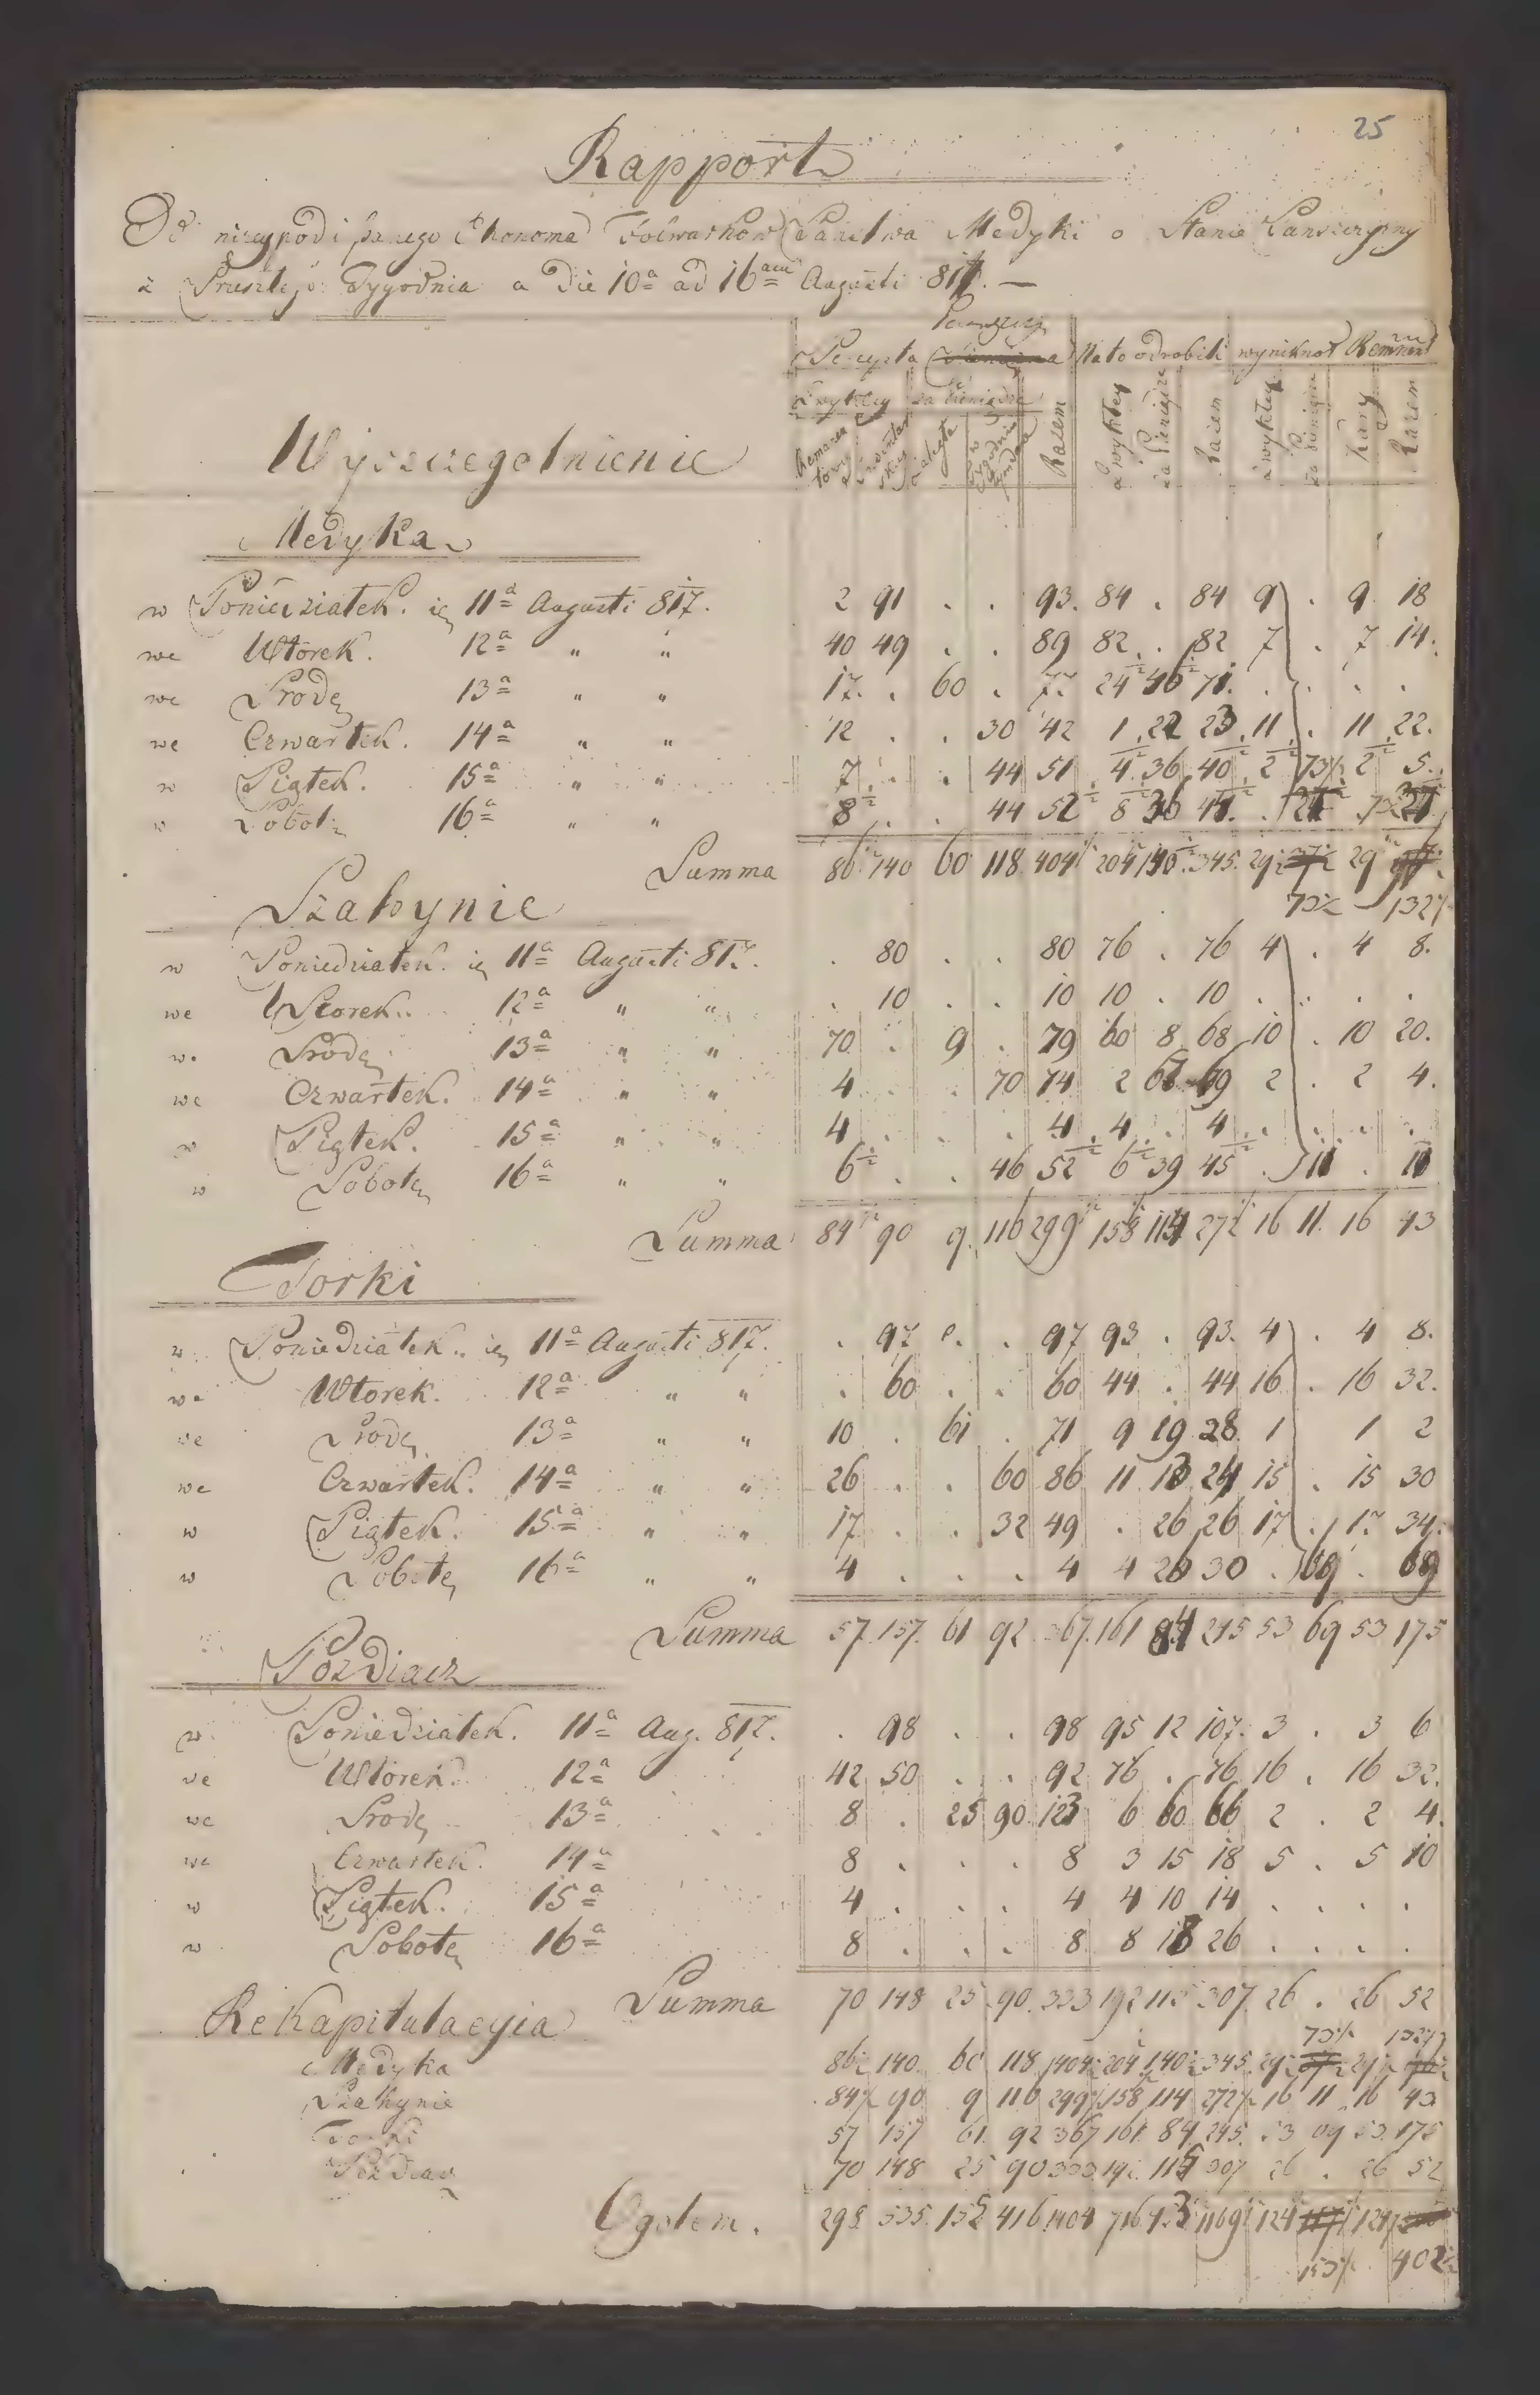 25
Rapport
Od niżejpodpisanego Ekonoma Folwarków Państwa Medyki o Stanie Pańszczyzny
z Przeszłego Tygodnia a Die 10a ad 16am Augusti 817. —
Percepta Na to odrobili wyniknoł Remanent
zwykłey za Pieniądze
Razem zwykłey za Pieniądze Razem zwykłey za Pieniądze Kary Razem
Wyszczegolnienie
Medyka
w Poniedziałek. 11a Augusti 817. 2 91 . . 93. 84 . 84 9 . 9 18
we Wtorek. 12a " " 40 49 . . 89 82 . 82 7 . 7 14.
we Srodę 13a " " 17. . 60 . 77 24½ 46½ 71. . . . .
we Czwartek. 14a " " 12 . . 30 42 1 22 23 11 . 11 22.
w Piątek. 15a " " 7 . . 44 51 4½ 36 40½ 2½ 73½ 2½ 5.
w Sobotę 16a " " 8½ . . 44 52½ 8½ 36 44½ .
Summa 86½ 140 60 118 404½ 204½ 140½ 345. 29½ 29½
73½ 132½
Szahynie
w Poniedziałek. 11a Augusti 817. . 80 . . 80 76 . 76 4 . 4 8.
we Wtorek. 12a " " . 10 . . 10 10 . 10 . . . .
we Srodę 13a " " 70 . 9 . 79 60 8 68 10 . 10 20.
we Czwartek. 14a " " 4 . . 70 74 2 67 69 2 . 2 4.
w Piątek. 15a " " 4 . . . 4 4 . 4 . . . .
w Sobotę 16a " " 6½ . . 46 52½ 6½ 39 45½ . 11 . 11
Summa 84½ 90 9. 116 299½ 158½ 114 272½ 16 11. 16 43
Torki
w Poniedziałek. 11a Augusti 817. . 97 . . 97 93 . 93. 4 . 4 8.
we Wtorek. 12a " " . 60 . . 60 44 . 44 16 . 16 32.
we Srodę 13a " " 10 . 61 . 71 9 19 28 1 1 2
we Czwartek. 14a " " 26 . . 60 86 11 13 24 15 . 15 30
w Piątek. 15a " " 17 . . 32 49 . 26 26 17 . 17 34.
w Sobotę 16a " " 4 . . . 4 4 26 30 . 69 . 69
Summa 57 157. 61 92 367. 161 84 245 53 69 53 175
Pozdiacz
w Poniedziałek. 11a Aug. 817. . 98 . . 98 95 12 107. 3 . 3 6
we Wtorek. 12a 42 50 . . 92 76 . 76 16 . 16 32.
we Srodę 13a 8 . 25 90 123 6 60 66 2 . 2 4.
we Czwartek. 14a 8 . . . 8 3 15 18 5 . 5 10
w Piątek. 15a 4 . . . 4 4 10 14 . . . .
w Sobotę 16a 8 . . . 8 8 18 26 . . . .
Summa 70 148 25 90. 333 192 115 307. 26 . 26 52
Rekapitulacyia
73½ 132½
Medyka 86½ 140. 60 118 404½ 204½ 140½ 345. 29½ 29½
Szahynie 84½ 90 9 116 299½ 158½ 114 272½ 16 11 16 43
Torki 57 157 61. 92 367 161 84 245. 53 69 53. 175
Pozdiacz 70 148 25 90 333 192. 115 307 26 . 26 52
Ogołem. 298 535. 155 416 1404 716 453 1169½ 124½ 124½
153½ 402½